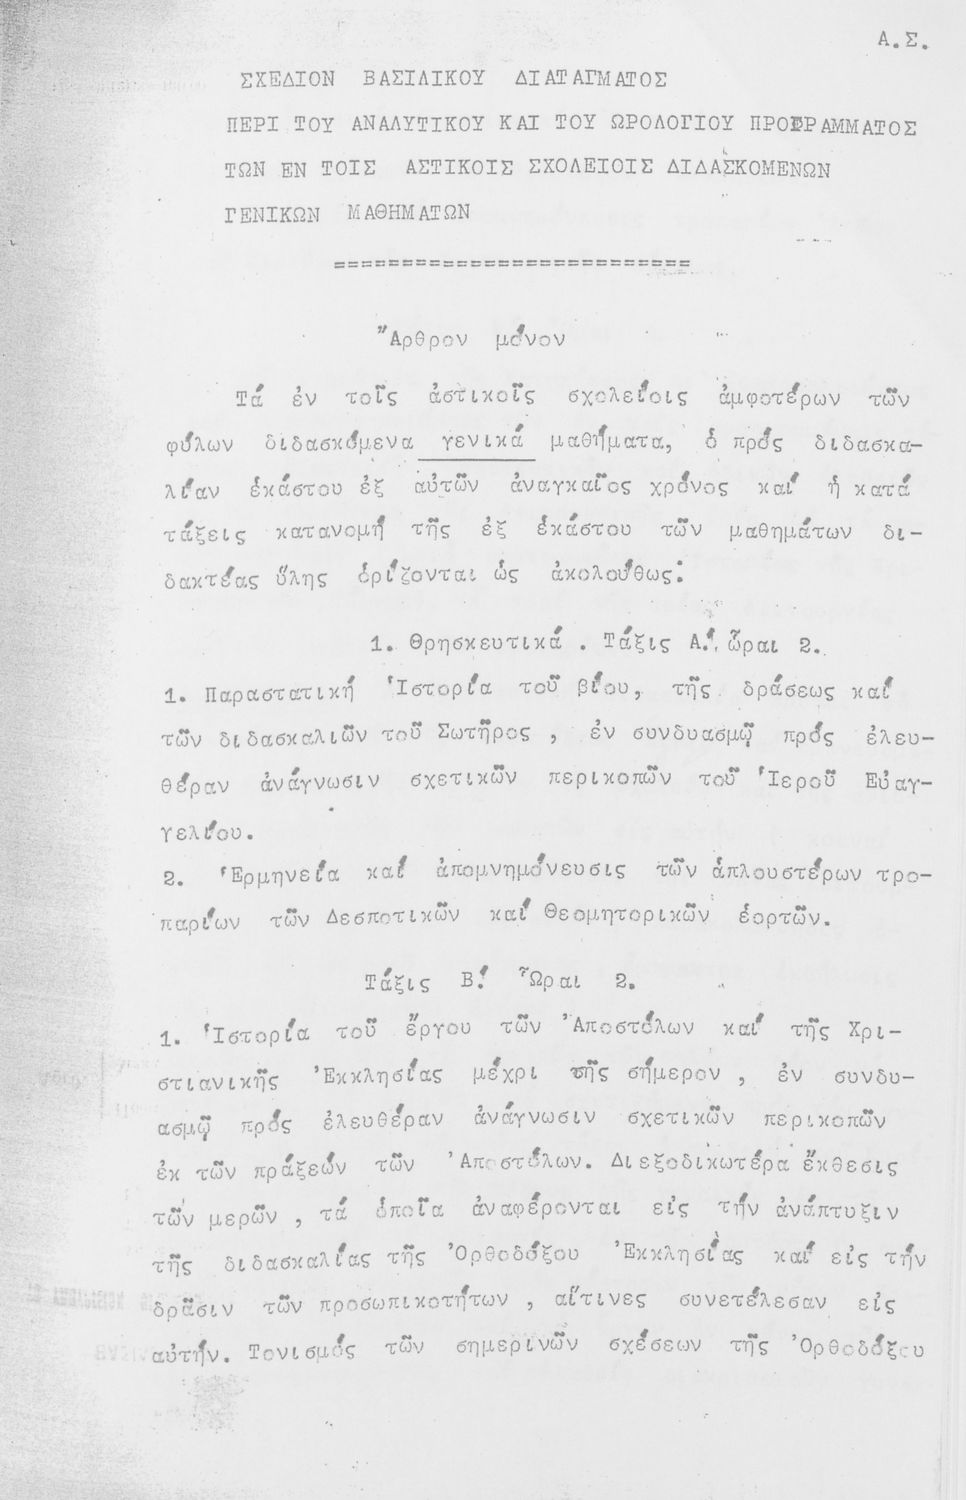 Α.Σ.
ΣΧΕΔΙΟΝ ΒΑΣΙΛΙΚΟΥ ΔΙΑΤΑΓΜΑΤΟΣ
ΠΕΡΙ ΤΟΥ ΑΝΑΛΥΤΙΚΟΥ ΚΑΙ ΤΟΥ ΩΡΟΛΟΓΙΟΥ ΠΡΟΓΡΑΜΜΑΤΟΣ
ΤΩΝ ΕΝ ΤΟΙΣ ΑΣΤΙΚΟΙΣ ΣΧΟΛΕΙΟΙΣ ΔΙΔΑΣΚΟΜΕΝΩΝ
ΓΕΝΙΚΩΝ ΜΑΘΗΜΑΤΩΝ
==========================
Ἄρθρον μόνον
Τά ἐν τοῖς ἀστικοῖς σχολείοις ἀμφοτέρων τῶν
φύλων διδασκόμενα γενικά μαθήματα, ὁ πρός διδασκα-
λίαν ἑκάστου ἐξ αὐτῶν ἀναγκαῖος χρόνος καί ἡ κατά
τάξεις κατανομή τῆς ἐξ ἑκάστου τῶν μαθημάτων δι-
δακτέας ὕλης ὁρίζονται ὡς ἀκολούθως:
1. Θρησκευτικά . Τάξις Α! ὧραι 2.
1. Παραστατική Ἱστορία τοῦ βίου, τῆς δράσεως καί
τῶν διδασκαλιῶν τοῦ Σωτῆρος , ἐν συνδυασμῷ πρός ἐλευ-
θέραν ἀνάγνωσιν σχετικῶν περικοπῶν τοῦ Ἱεροῦ Εὐαγ-
γελίου.
2. Ἑρμηνεία καί ἀπομνημόνευσις τῶν ἁπλουστέρων τρο-
παρίων τῶν Δεσποτικῶν καί Θεομητορικῶν ἑορτῶν.
Τάξις Β! Ὧραι 2.
1. Ἱστορία τοῦ ἔργου τῶν Ἀποστόλων καί τῆς Χρι-
στιανικῆς Ἐκκλησίας μέχρι τῆς σήμερον , ἐν συνδυ-
ασμῷ πρός ἐλευθέραν ἀνάγνωσιν σχετικῶν περικοπῶν
ἐκ τῶν πράξεών τῶν Ἀποστόλων. Διεξοδικωτέρα ἔκθεσις
τῶν μερῶν , τά ὁποῖα ἀναφέρονται εἰς τήν ἀνάπτυξιν
τῆς διδασκαλίας τῆς Ὀρθοδόξου Ἐκκλησίας καί εἰς τήν
δρᾶσιν τῶν προσωπικοτήτων , αἵτινες συνετέλεσαν εἰς
αὐτήν. Τονισμός τῶν σημερινῶν σχέσεων τῆς Ὀρθοδόξου